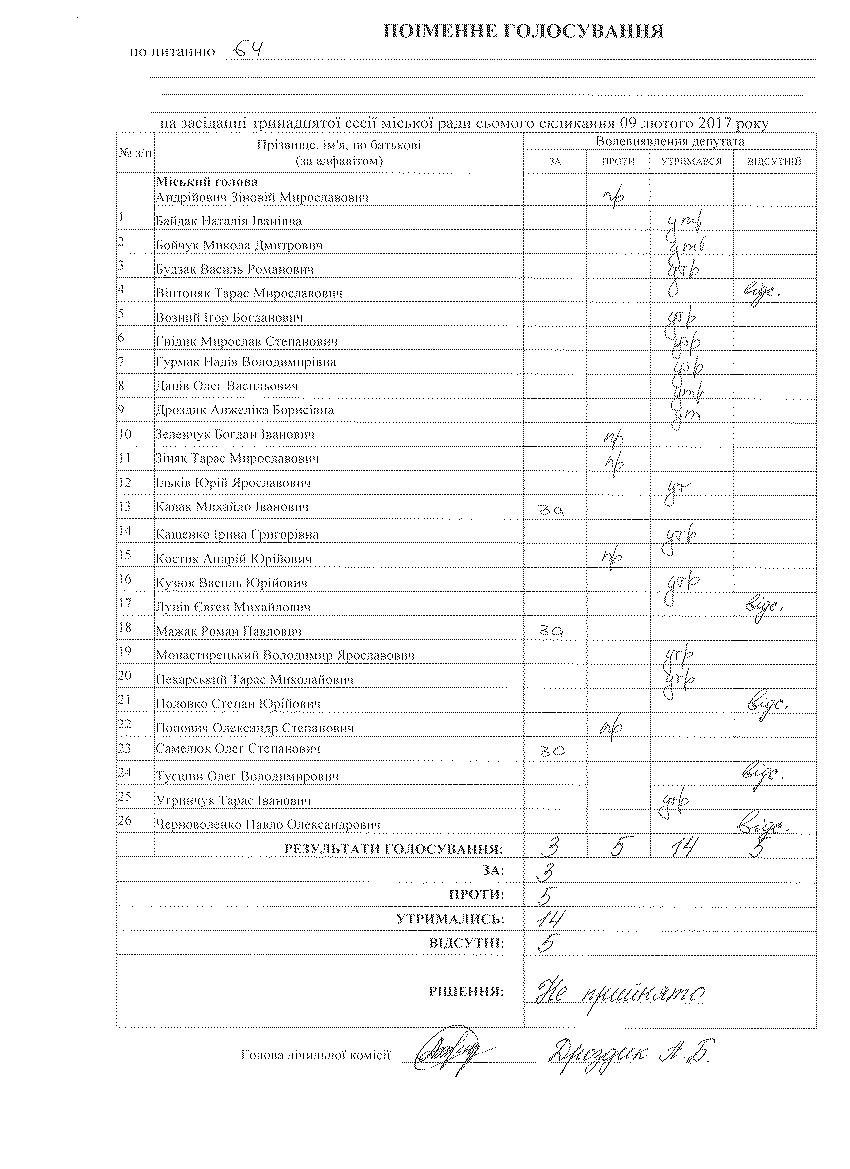 ПОІМЕННЕ ГОЛОСУВАННЯ
по питанню 64
на засіданні тринадцятої сесії міської ради сьомого скликання 09 лютого 2017 року
№ з/п Прізвище, ім'я, по батькові (за алфавітом) Волевиявлення депутата
ЗА ПРОТИ УТРИМАВСЯ ВІДСУТНІЙ
Міський голова
Андрійович Зіновій Мирославович пр
1 Байдак Наталія Іванівна утр
2 Бойчук Микола Дмитрович утв
3 Будзак Василь Романович утр
4 Вінтоняк Тарас Мирославович відс.
5 Возний Ігор Богданович утр
6 Гнідик Мирослав Степанович утр
7 Гурмак Надія Володимирівна утр
8 Данів Олег Васильович утв
9 Дроздик Анжеліка Борисівна ут
10 Зеленчук Богдан Іванович пр
11 Зіняк Тарас Мирославович пр
12 Ільків Юрій Ярославович ут
13 Капак Михайло Іванович за
14 Кащенко Ірина Григорівна утр
15 Костик Андрій Юрійович пр
16 Кузюк Василь Юрійович утр
17 Лунів Євген Михайлович відс.
18 Мажак Роман Павлович за
19 Монастирецький Володимир Ярославович утр
20 Пекарський Тарас Миколайович утр
21 Половко Степан Юрійович відс.
22 Попович Олександр Степанович пр
23 Самелюк Олег Степанович за
24 Тусшин Олег Володимирович відс.
25 Угринчук Тарас Іванович утр
26 Черноволенко Павло Олександрович відс.
РЕЗУЛЬТАТИ ГОЛОСУВАННЯ: 3 5 14 5
ЗА: 3
ПРОТИ: 5
УТРИМАЛИСЬ: 14
ВІДСУТНІ: 5
РІШЕННЯ: Не прийнято
Голова лічильної комісії Дроздик А.Б.